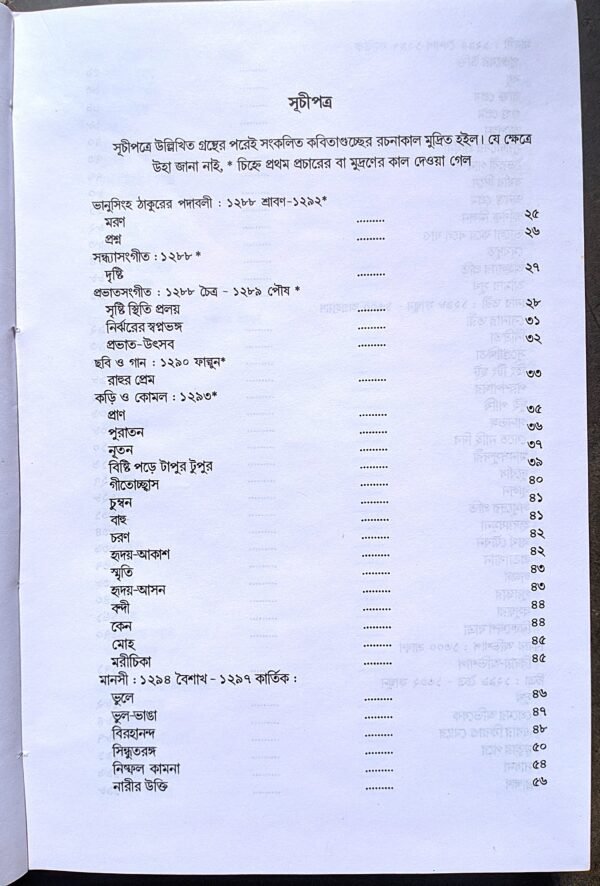 সূচীপত্র
সূচীপত্রে উল্লিখিত গ্রন্থের পরেই সংকলিত কবিতাগুচ্ছের রচনাকাল মুদ্রিত হইল। যে ক্ষেত্রে
উহা জানা নাই, * চিহ্নে প্রথম প্রচারের বা মুদ্রণের কাল দেওয়া গেল
ভানুসিংহ ঠাকুরের পদাবলী : ১২৮৮ শ্রাবণ-১২৯২*
মরণ ......... ২৫
প্রশ্ন ......... ২৬
সন্ধ্যাসংগীত : ১২৮৮ *
দৃষ্টি ......... ২৭
প্রভাতসংগীত : ১২৮৮ চৈত্র - ১২৮৯ পৌষ *
সৃষ্টি স্থিতি প্রলয় ......... ২৮
নির্ঝরের স্বপ্নভঙ্গ ......... ৩১
প্রভাত-উৎসব ......... ৩২
ছবি ও গান : ১২৯০ ফাল্গুন*
রাহুর প্রেম ......... ৩৩
কড়ি ও কোমল : ১২৯৩*
প্রাণ ......... ৩৫
পুরাতন ......... ৩৬
নূতন ......... ৩৭
বিষ্টি পড়ে টাপুর টুপুর ......... ৩৯
গীতোচ্ছ্বাস ......... ৪০
চুম্বন ......... ৪১
বাহু ......... ৪১
চরণ ......... ৪২
হৃদয়-আকাশ ......... ৪২
স্মৃতি ......... ৪৩
হৃদয়-আসন ......... ৪৩
বন্দী ......... ৪৪
কেন ......... ৪৪
মোহ ......... ৪৫
মরীচিকা ......... ৪৫
মানসী : ১২৯৪ বৈশাখ - ১২৯৭ কার্তিক :
ভুলে ......... ৪৬
ভুল-ভাঙা ......... ৪৭
বিরহানন্দ ......... ৪৮
সিন্ধুতরঙ্গ ......... ৫০
নিষ্ফল কামনা ......... ৫৪
নারীর উক্তি ......... ৫৬